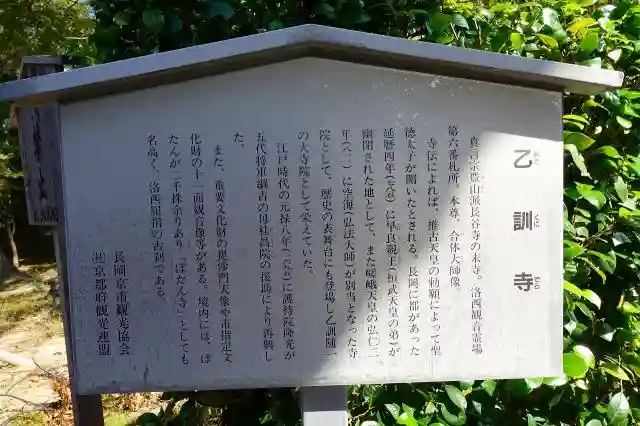 乙訓寺
おと くに でら
真言宗豊山派長谷寺の末寺。洛西観音霊場
第六番札所。本尊、合体大師像。
寺伝によれば、推古天皇の勅願によって聖
徳太子が開いたとされる。長岡に都があった
延暦四年(七八五)に早良親王(桓武天皇の弟)が
幽閉された地として、また嵯峨天皇の弘仁二
年(八一一)に空海(弘法大師)が別当となった寺
院として、歴史の表舞台にも登場し乙訓随一
の大寺院として栄えていた。
江戸時代の元禄八年(一六九五)に護持院隆光が
五代将軍綱吉の母桂昌院の援助により再興し
た。
また、重要文化財の毘沙門天像や市指定文
化財の十一面観音像等がある。境内には、ぼ
たんが二千株余りあり「ぼたん寺」としても
名高く、洛西屈指の古刹である。
長岡京市観光協会
㈳京都府観光連盟